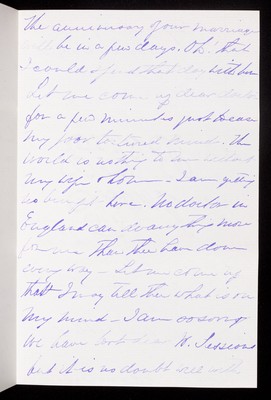 The anniversary of our marriage
will be in a few days. Oh. that
I could spend that day with her
Let me come my dear
for a few minutes just to ease
my poor tortured mind. The
world is nothing to me without
my wife & home. I am getting
no benefit here. No doctor in
England can do anything more
for me than they have done
every way - Let me come up
that I may tell thee what is on
my mind - I am so sorry
we have Sessions
but it is no doubt well